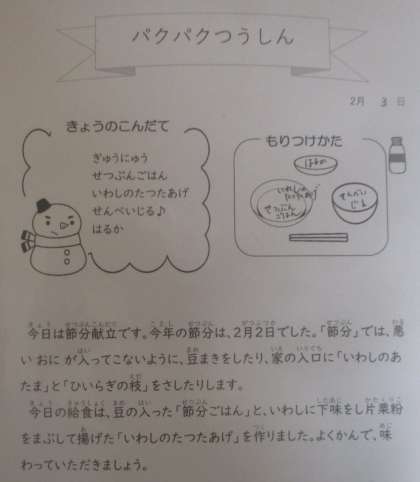 パクパクつうしん
2月 3日
きょうのこんだて
ぎゅうにゅう
せつぶんごはん
いわしのたつたあげ
せんべいじる♪
はるか
もりつけかた
はるか
いわしの
たつたあげ
せつぶん
ごはん
せんべい
じる
今日は節分献立です。今年の節分は、2月2日でした。「節分」では、悪
い おに が入ってこないように、豆まきをしたり、家の入口に「いわしのあ
たま」と「ひいらぎの枝」をさしたりします。
今日の給食は、豆の入った「節分ごはん」と、いわしに下味をし片栗粉
をまぶして揚げた「いわしのたつたあげ」を作りました。よくかんで、味
わっていただきましょう。